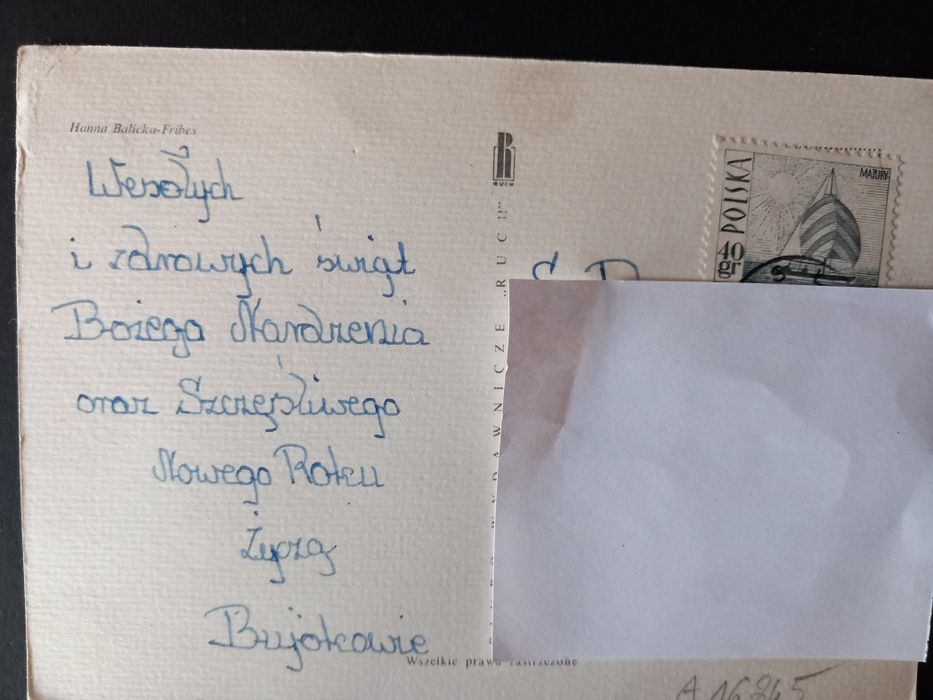 Hanna Balicka-Fribes
Wesołych
i zdrowych świąt
Bożego Narodzenia
oraz Szczęśliwego
Nowego Roku
Życzą
Bujokowie
RUCH
WYDAWNICZE „RUCH”
POLSKA
MAZURY
40
gr
Wszelkie prawa zastrzeżone
A 16845